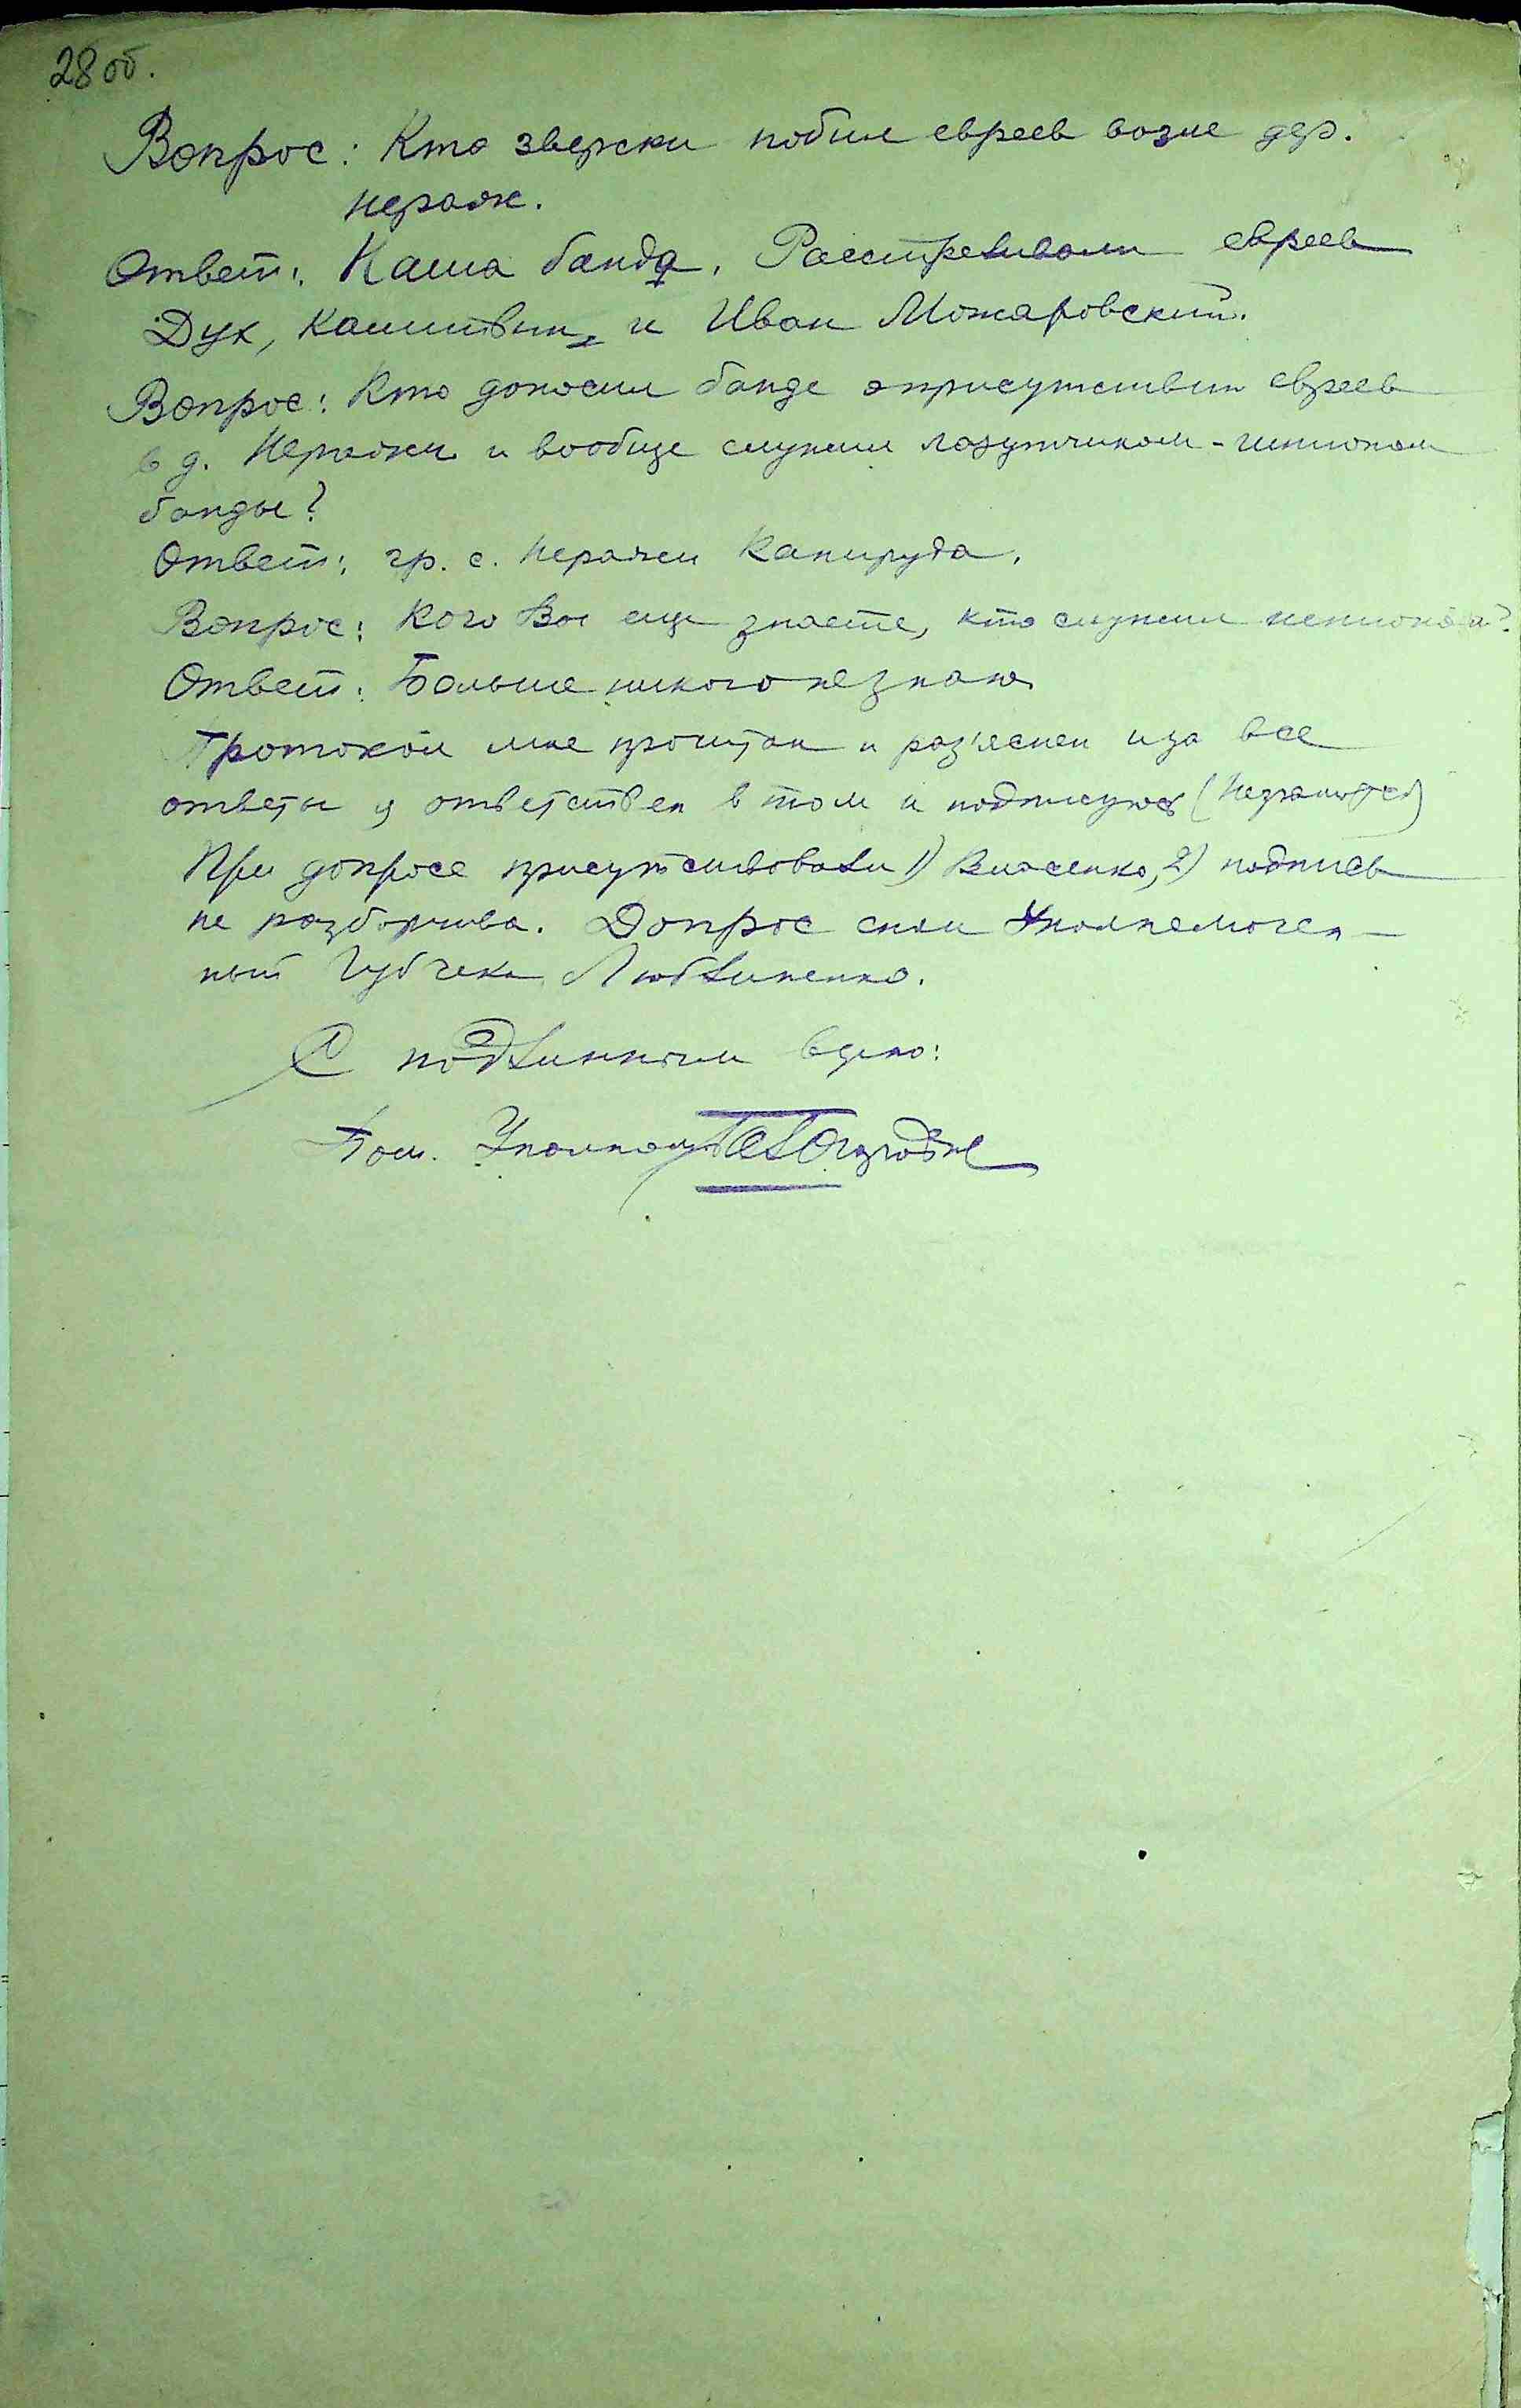 28 об.
Вопрос: Кто зверски побил евреев возле дер.
Нераж.
Ответ: Наша банда. Расстреливали евреев
Дух, Калитвин, и Иван Можаровский.
Вопрос: Кто доносил банде о присутствии евреев
в д. Неражи и вообще служил лазутчиком-шпионом
банды?
Ответ: гр. с. Неражи Капируда.
Вопрос: Кого Вы еще знаете, кто служил шпионом?
Ответ: Больше никого не знаю.
Протокол мне прочитан и раз'яснен и за все
ответы я ответствен в том и подписуюсь
При допросе присутствовали 1) Власенко, 2) подпись
не разборчива. Допрос снял Уполномочен-
ный Губчека Любвиненко.
С подлинным верно:
Пом. Уполном